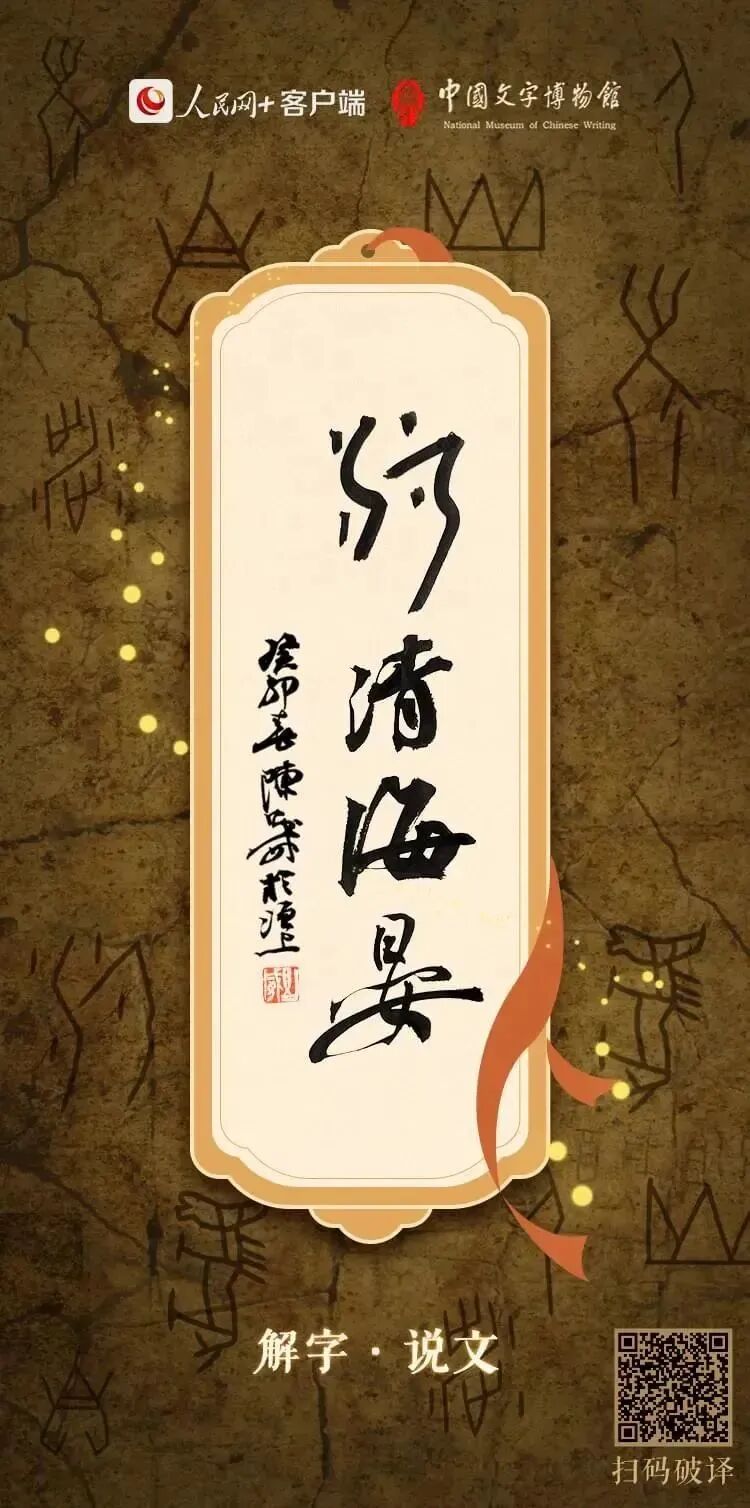 人民网+客户端
中國文字博物館
National Museum of Chinese Writing
河清海晏
癸卯春陳於洹上
解字·说文
扫码破译